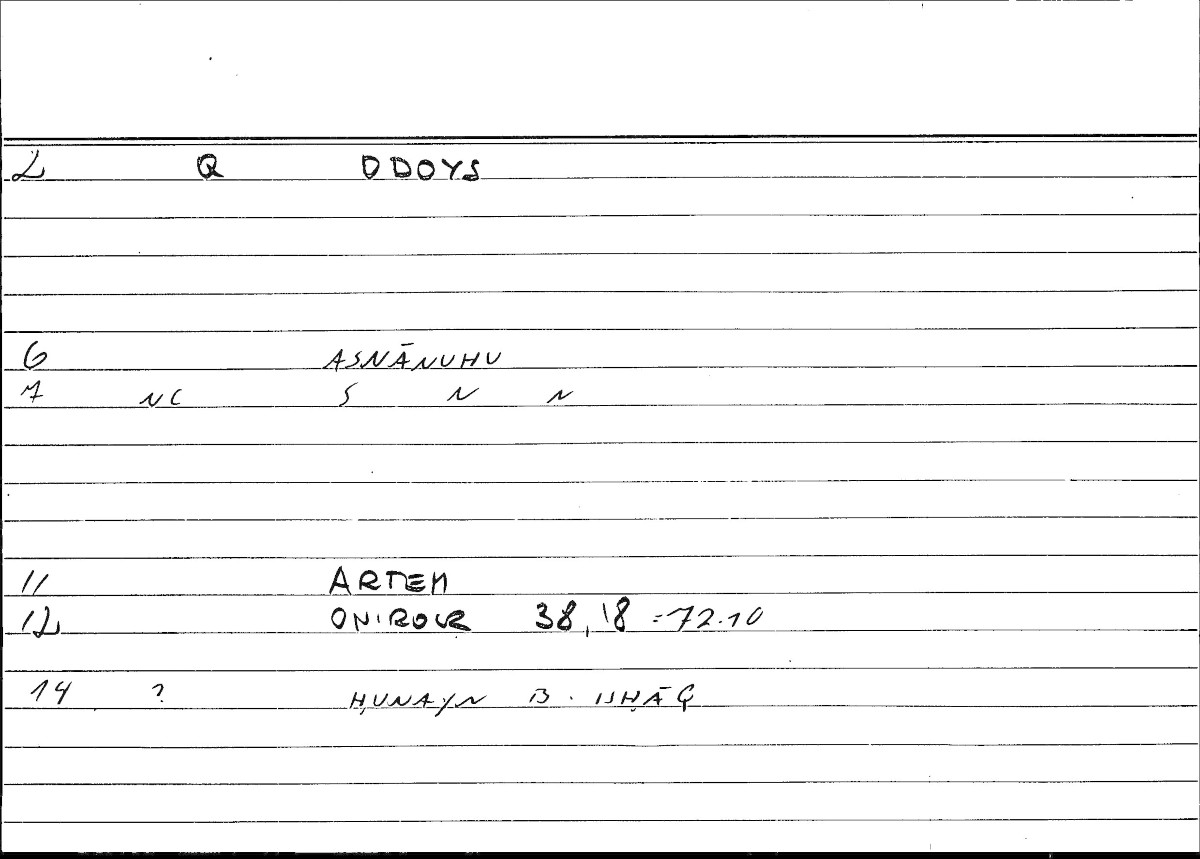 2 Q ODOYS
6 ASNĀNUHU
7 NC S N N
11 ARTEM
12 ONIROCR 38,18 =72.10
14 ? ḤUNAYN B. ISḤĀQ